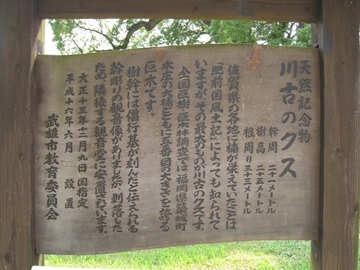 天然記念物
川古のクス
幹周 二十一メートル
樹高 二十五メートル
根周り 三十三メートル
佐賀県の各地に楠が栄えていたことは
「肥前国風土記」によっても知られて
いますが、その最大のものが川古のクスです。
全国巨樹・巨木林調査では福岡県築城町
本庄の大楠とともに五番目の大きさを誇る
巨木です。
樹幹には僧行基が刻んだと伝えられる
幹彫りの観音像がありましたが、剥落した
ため、隣接する観音堂に安置されています。
大正十三年十二月九日 国指定
平成十六年六月 設置
武雄市教育委員会